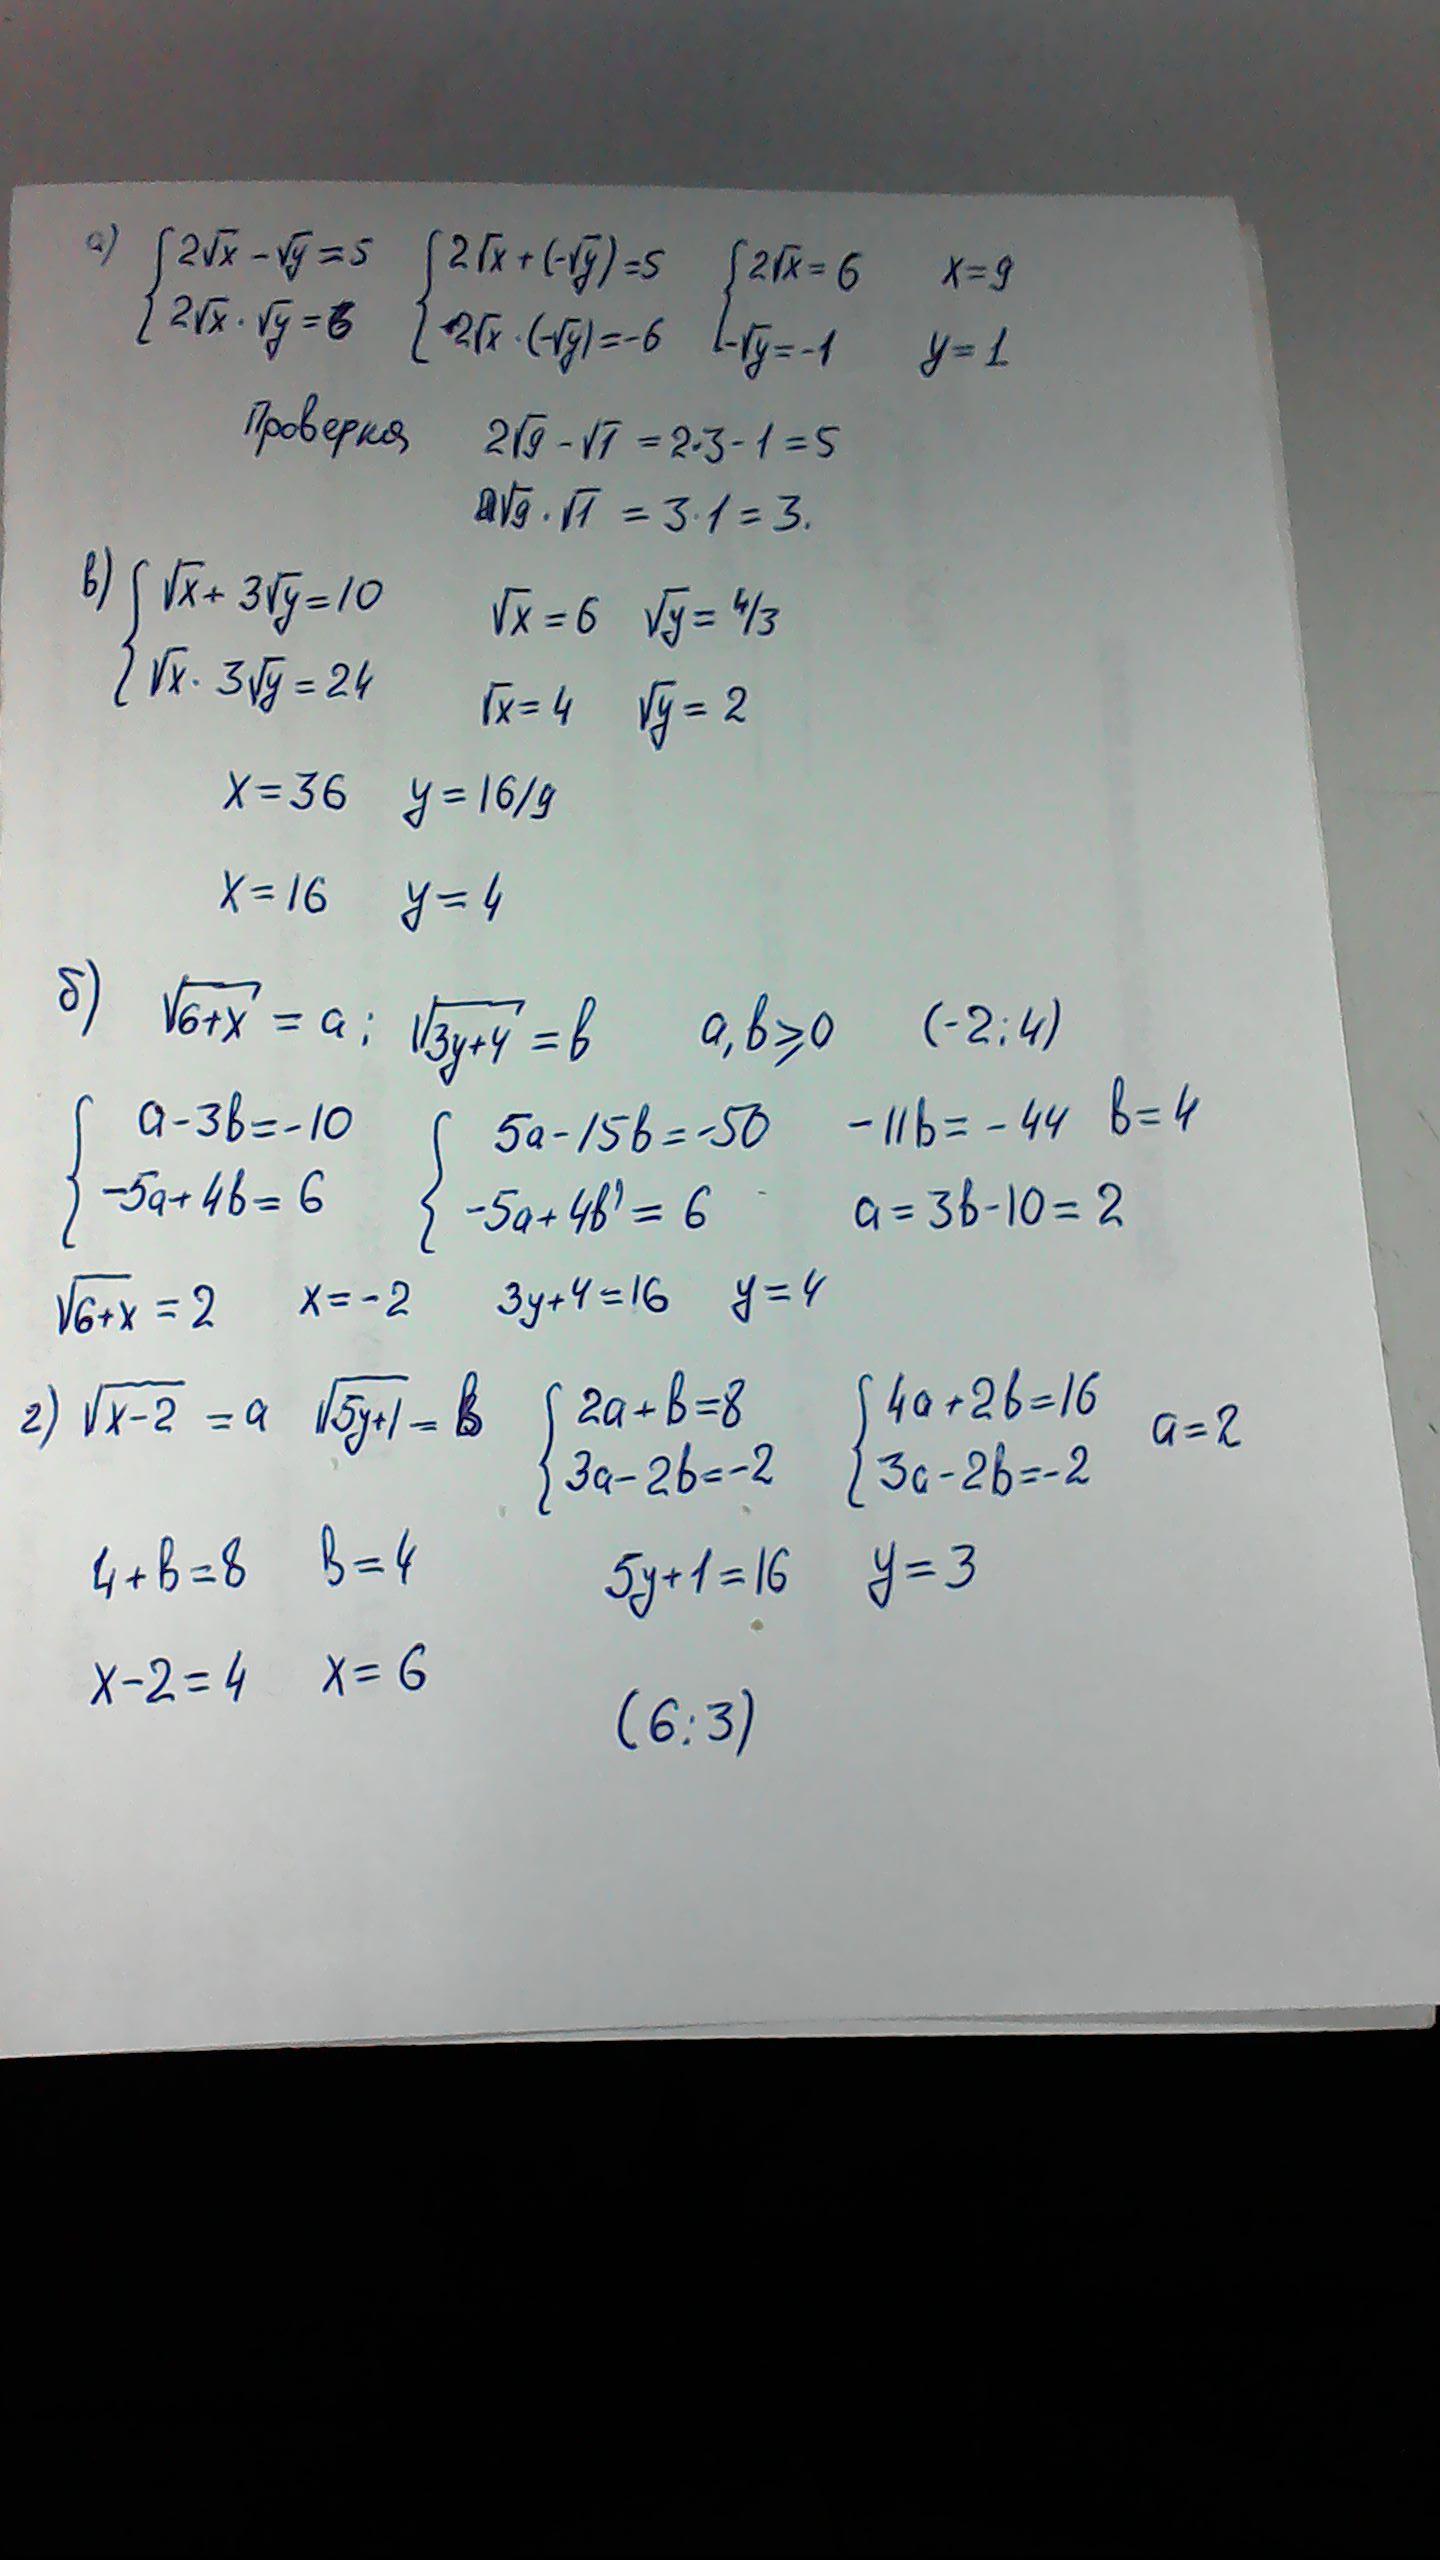 а) { 2√x - √y = 5 { 2√x + (-√y) = 5 { 2√x = 6 x = 9
2√x · √y = 6 2√x · (-√y) = -6 -√y = -1 y = 1
Проверка 2√9 - √1 = 2·3 - 1 = 5
√9 · √1 = 3·1 = 3.
в) { √x + 3√y = 10 √x = 6 √y = 4/3
√x · 3√y = 24 √x = 4 √y = 2
x = 36 y = 16/9
x = 16 y = 4
б) √6+x = a; √3y+4 = b a, b ≥ 0 (-2; 4)
{ a - 3b = -10 { 5a - 15b = -50 -11b = -44 b = 4
-5a + 4b = 6 -5a + 4b = 6 a = 3b - 10 = 2
√6+x = 2 x = -2 3y + 4 = 16 y = 4
г) √x-2 = a √5y+1 = b { 2a + b = 8 { 4a + 2b = 16 a = 2
3a - 2b = -2 3a - 2b = -2
4 + b = 8 b = 4 5y + 1 = 16 y = 3
x - 2 = 4 x = 6
(6; 3)